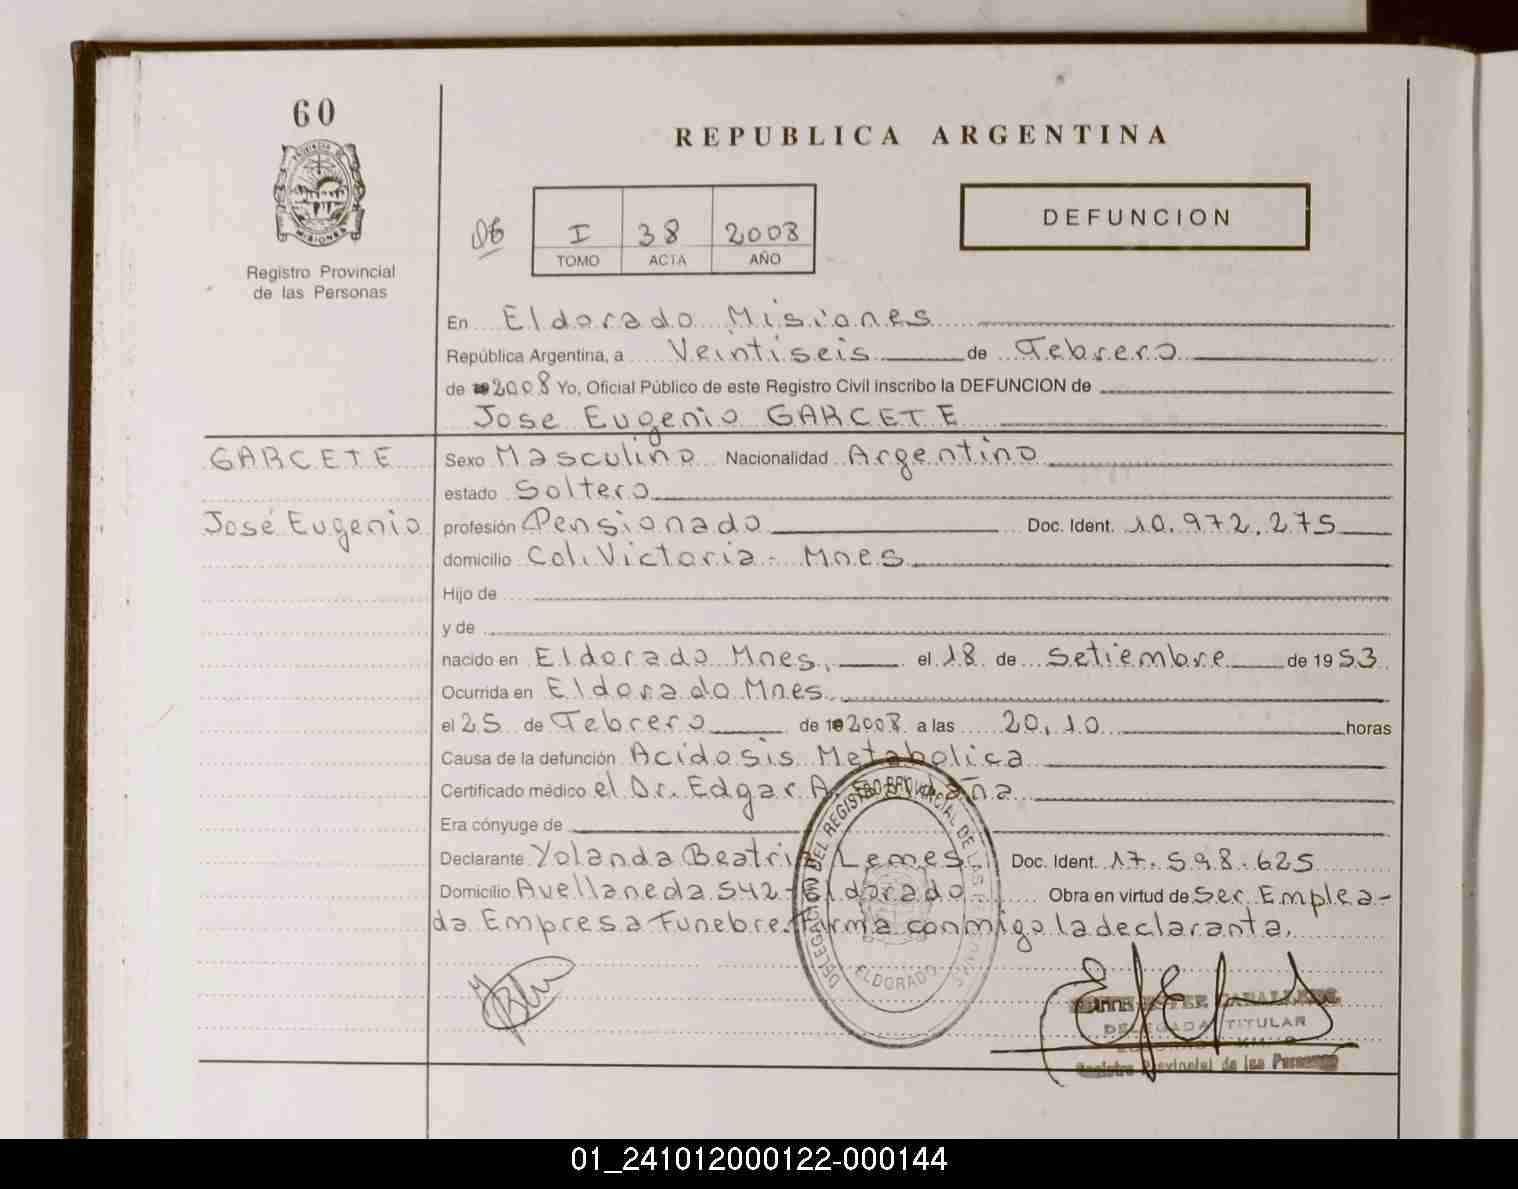 60
PROVINCIA D
MISIONES
Registro Provincial
de las Personas
REPUBLICA ARGENTINA
06
I 38 2008
TOMO ACTA AÑO
DEFUNCION
En Eldorado Misiones
República Argentina, a Veintiseis de Febrero
de 2008 Yo, Oficial Público de este Registro Civil inscribo la DEFUNCION de
Jose Eugenio GARCETE
GARCETE
José Eugenio
Sexo Masculino Nacionalidad Argentino
estado Soltero
profesión Pensionado Doc. Ident. 10.972.275
domicilio Col. Victoria - Mnes
Hijo de
y de
nacido en Eldorado Mnes. el 18 de Setiembre de 1953
Ocurrida en Eldorado Mnes.
el 25 de Febrero de 2008 a las 20,10 horas
Causa de la defunción Acidosis Metabolica
Certificado médico el Dr. Edgar A.
Era cónyuge de
Declarante Yolanda Beatriz Lemes Doc. Ident. 17.598.625
Domicilio Avellaneda 542 - Eldorado - Obra en virtud de Ser Emplea-
da Empresa Funebre. Firma conmigo la declaranta.
DELEGACION DEL REGISTRO PROVINCIAL DE LAS PERSONAS
ELDORADO
CABALLERO
DELEGADA TITULAR
Registro Provincial de las Personas
01_241012000122-000144